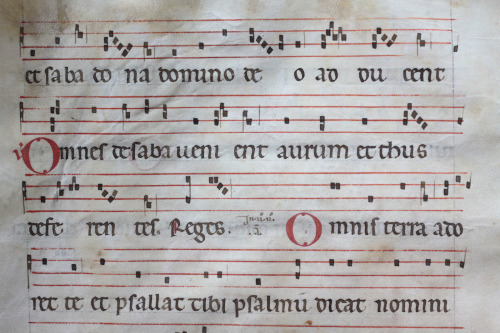 et saba do na domino de o ad du cent
℣ Omnes de saba veni ent aurum et thus
defe ren tes. Reges. Omnis terra ado
ret te et psallat tibi psalmū dicat nomini